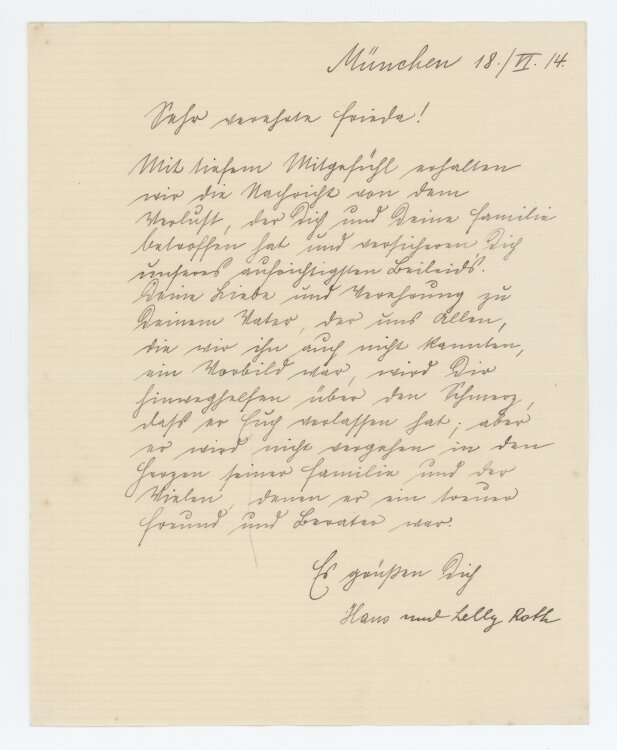 München 18./VI. 14.
Sehr verehrte Frieda!
Mit tiefem Mitgefühl erhalten
wir die Nachricht von dem
Verlust, der Dich und Deine Familie
betroffen hat und versicheren Dich
unseres aufrichtigsten Beileids.
Deine Liebe und Verehrung zu
Deinem Vater, der uns Allen,
die wir ihn auch nicht kannten,
ein Vorbild war, wird Dir
hinweghelfen über den Schmerz,
dass er Euch verlassen hat; aber
er wird nicht vergehen in den
Herzen seiner Familie und der
Vielen, denen er ein treuer
Freund und Berater war.
Es grüßen Dich
Hans und Lelly Roth